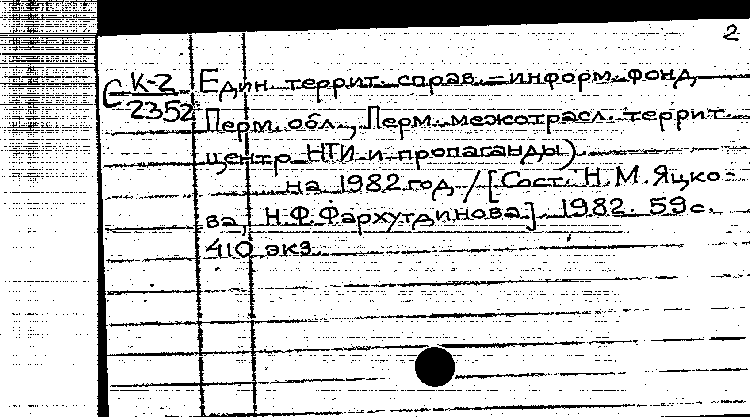 2
С К-2 Един. террит. справ.-информ. фонд,
2352 Перм. обл., Перм. межотрасл. террит.
центр НТИ и пропаганды)
на 1982 год / [Сост. Н.М. Яцко-
ва, Н.Ф. Фархутдинова]. 1982. 59 с.
410 экз.